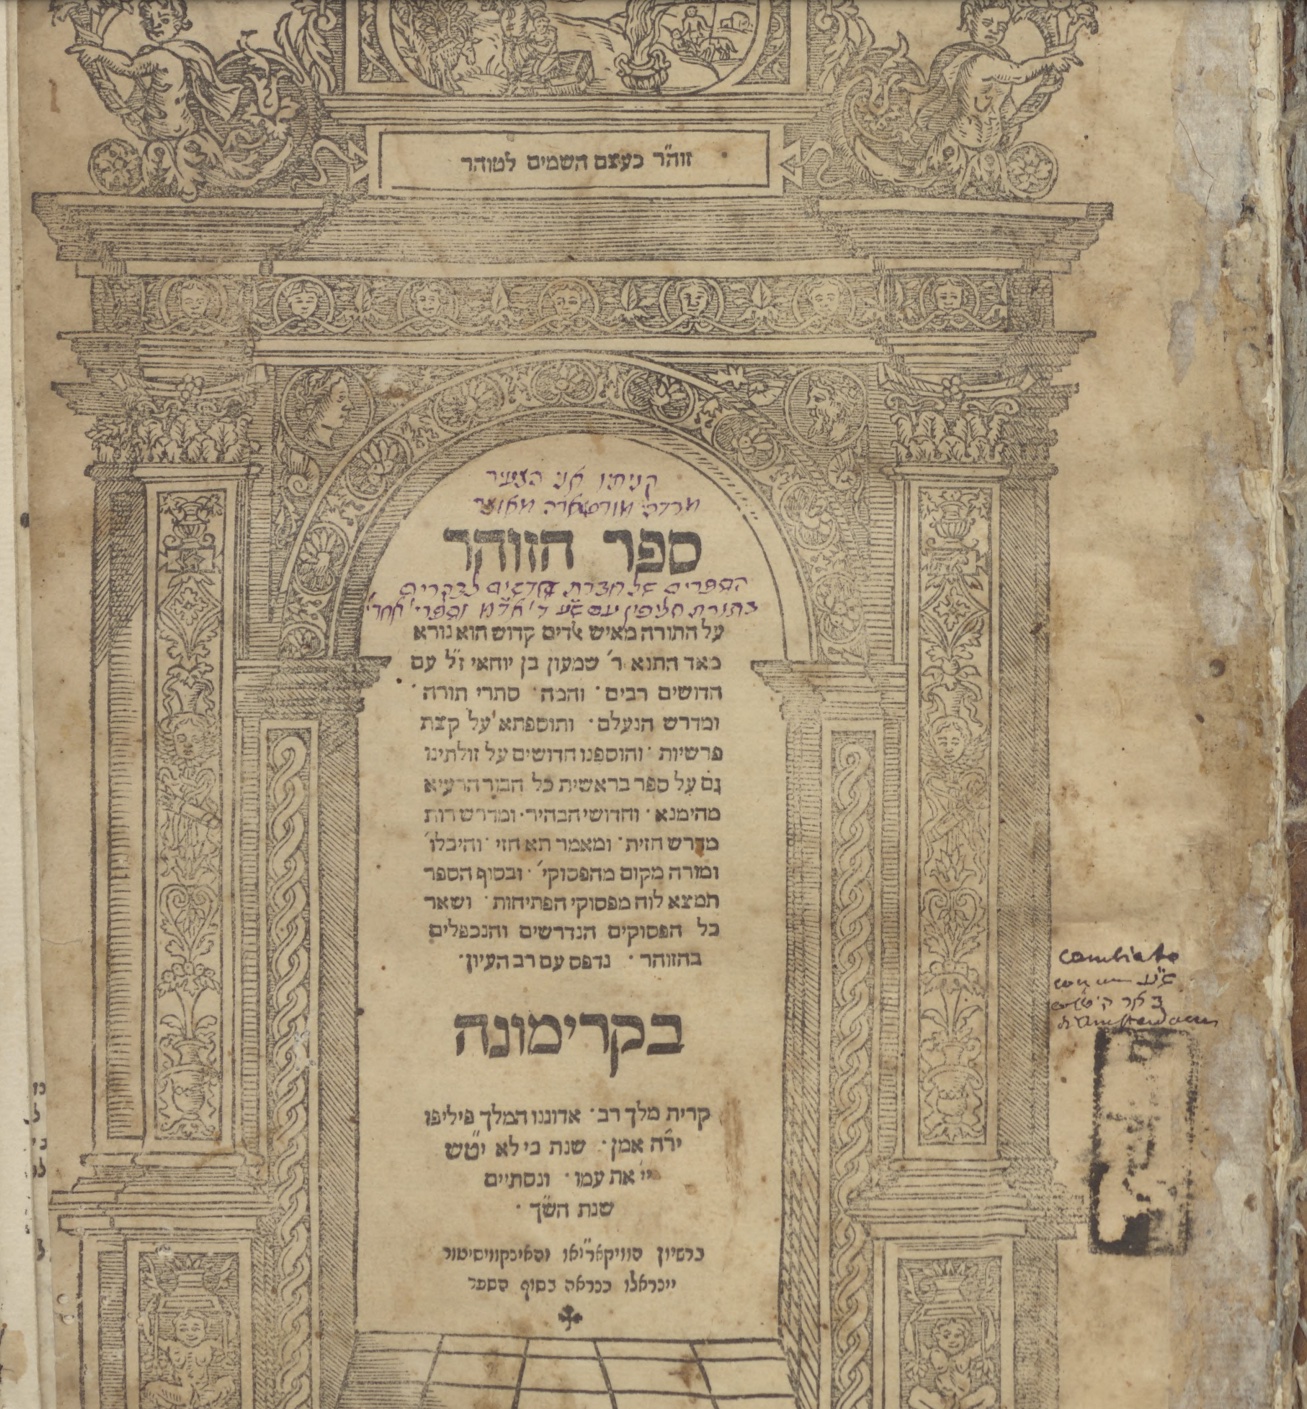 זוה״ר כעצם השמים לטוהר
קניתי אני הצעיר
מרדכי
ספר הזוהר
הספרים של חברת לבקרים
על התורה מאיש אדים קדוש הוא נורא
מאד התנא ר׳ שמעון בן יוחאי ז״ל עם
חדושים רבים · והמה · סתרי תורה ·
ומדרש הנעלם · ותוספתא על קצת
פרשיות · והוספנו חדושים על זולתינו
גם על ספר בראשית כל חבור הרעיא
מהימנא · וחדושי הבהיר · ומדרש רות
מדרש חזית · ומאמר תא חזי · והיכלו׳
ומורה מקום מהפסוקי׳ · ובסוף הספר
תמצא לוח מפסוקי הפתיחות · ושאר
כל הפסוקים הנדרשים והנכפלים
בהזוהר · נדפס עם רב העיון ·
בקרימונה
קרית מלך רב · אדוננו המלך פיליפו
יר״ה אמן · שנת כי לא יטש
יי׳ את עמו · ונסתיים
שנת הש״ך ·
ברשיון
יינראלו כנראה בסוף הספר
cambiato
con un
d'Amsterdam